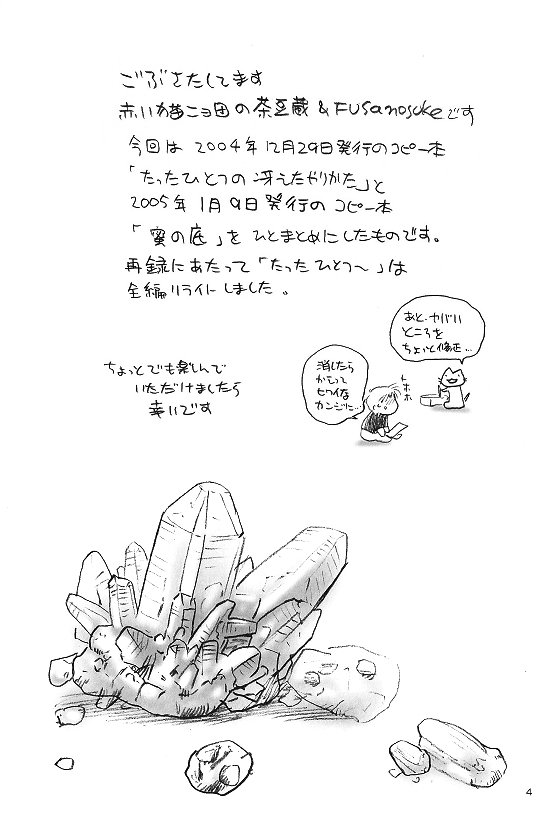 ごぶさたしてます
赤い猫ニョ田の茶豆蔵&Fusanosukeです
今回は 2004年12月29日発行のコピー本
「たったひとつの冴えたやりかた」と
2005年1月9日発行の コピー本
「蜜の底」を ひとまとめにしたものです。
再録にあたって「たったひとつ〜」は
全編リライトしました。
あと、ヤバい
ところを
ちょっと修正…
消したら
かえって
ヒワイな
カンジに…
トホホ
ちょっとでも楽しんで
いただけましたら
幸いです
4